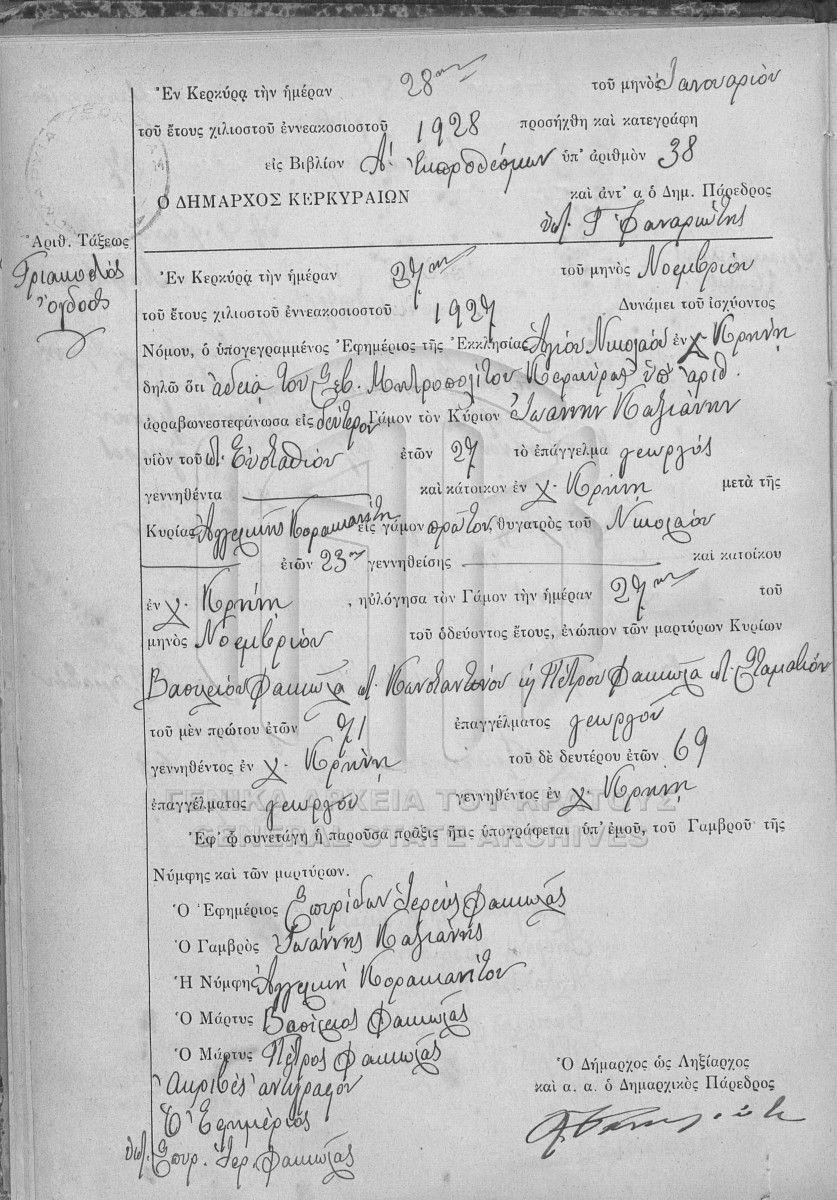 Ἐν Κερκύρᾳ τὴν ἡμέραν 28ην τοῦ μηνὸς Ἰανουαρίου
τοῦ ἔτους χιλιοστοῦ ἐννεακοσιοστοῦ 1928 προσήχθη καὶ κατεγράφη
εἰς Βιβλίον Α' Ἐκπροθέσμων ὑπ' ἀριθμὸν 38
Ὁ ΔΗΜΑΡΧΟΣ ΚΕΡΚΥΡΑΙΩΝ καὶ ἀντ' α ὁ Δημ. Πάρεδρος
ὑπ. Γ Φαναριώτης
Ἀριθ. Τάξεως
Τριακοστός
ὄγδοος
Ἐν Κερκύρᾳ τὴν ἡμέραν 27ην τοῦ μηνὸς Νοεμβρίου
τοῦ ἔτους χιλιοστοῦ ἐννεακοσιοστοῦ 1927 Δυνάμει τοῦ ἰσχύοντος
Νόμου, ὁ ὑπογεγραμμένος Ἐφημέριος τῆς Ἐκκλησίας Ἁγίου Νικολάου ἐν χ. Κρήνῃ
δηλῶ ὅτι ἀδείᾳ του Σεβ. Μητροπολίτου Κερκύρας ὑπ' ἀριθ.
ἀρραβωνεστεφάνωσα εἰς δεύτερον Γάμον τὸν Κύριον Ἰωάννην Καζιάνην
υἱὸν τοῦ π. Εὐσταθίου ἐτῶν 27 τὸ ἐπάγγελμα γεωργός
γεννηθέντα καὶ κάτοικον ἐν χ. Κρήνῃ μετὰ τῆς
Κυρίας Ἀγγελικῆς Κορακιανίτη εἰς γάμον πρῶτον, θυγατρὸς τοῦ Νικολάου
ἐτῶν 23ην γεννηθείσης καὶ κατοίκου
ἐν χ. Κρήνῃ, ηὐλόγησα τὸν Γάμον τὴν ἡμέραν 27ην τοῦ
μηνὸς Νοεμβρίου τοῦ ὁδεύοντος ἔτους, ἐνώπιον τῶν μαρτύρων Κυρίων
Βασιλείου Φακιολᾶ π. Κωνσταντίνου κ Πέτρου Φακιολᾶ π. Σταματίου
τοῦ μὲν πρώτου ἐτῶν 71 ἐπαγγέλματος γεωργοῦ
γεννηθέντος ἐν χ. Κρήνῃ τοῦ δὲ δευτέρου ἐτῶν 69
ἐπαγγέλματος γεωργοῦ γεννηθέντος ἐν χ. Κρήνῃ
ΓΕΝΙΚΑ ΑΡΧΕΙΑ ΤΟΥ ΚΡΑΤΟΥΣ
Ἐφ' ᾧ συνετάγη ἡ παροῦσα πρᾶξις ἥτις ὑπογράφεται ὑπ' ἐμοῦ, τοῦ Γαμβροῦ τῆς
GENERAL STATE ARCHIVES
Νύμφης καὶ τῶν μαρτύρων.
Ὁ Ἐφημέριος Σπυρίδων Ἱερεύς Φακιολᾶς
Ὁ Γαμβρὸς Ἰωάννης Καζιάνης
Ἡ Νύμφη Ἀγγελική Κορακιανίτου
Ὁ Μάρτυς Βασίλειος Φακιολᾶς
Ὁ Μάρτυς Πέτρος Φακιολᾶς
Ἀκριβές ἀντίγραφον
Ὁ Ἐφημέριος
ὑπ. Σπυρ. Ἱερ. Φακιολᾶς
Ὁ Δήμαρχος ὡς Ληξίαρχος
καὶ α. α. ὁ Δημαρχικὸς Πάρεδρος